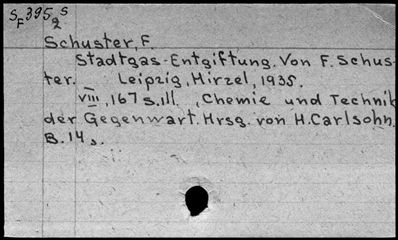 SF395 S
2
Schuster, F.
Stadtgas-Entgiftung. Von F. Schus-
ter. Leipzig, Hirzel, 1935.
VIII, 167 S. Ill. , Chemie und Technik
der Gegenwart. Hrsg. von H. Carlsohn.
B. 14 s.